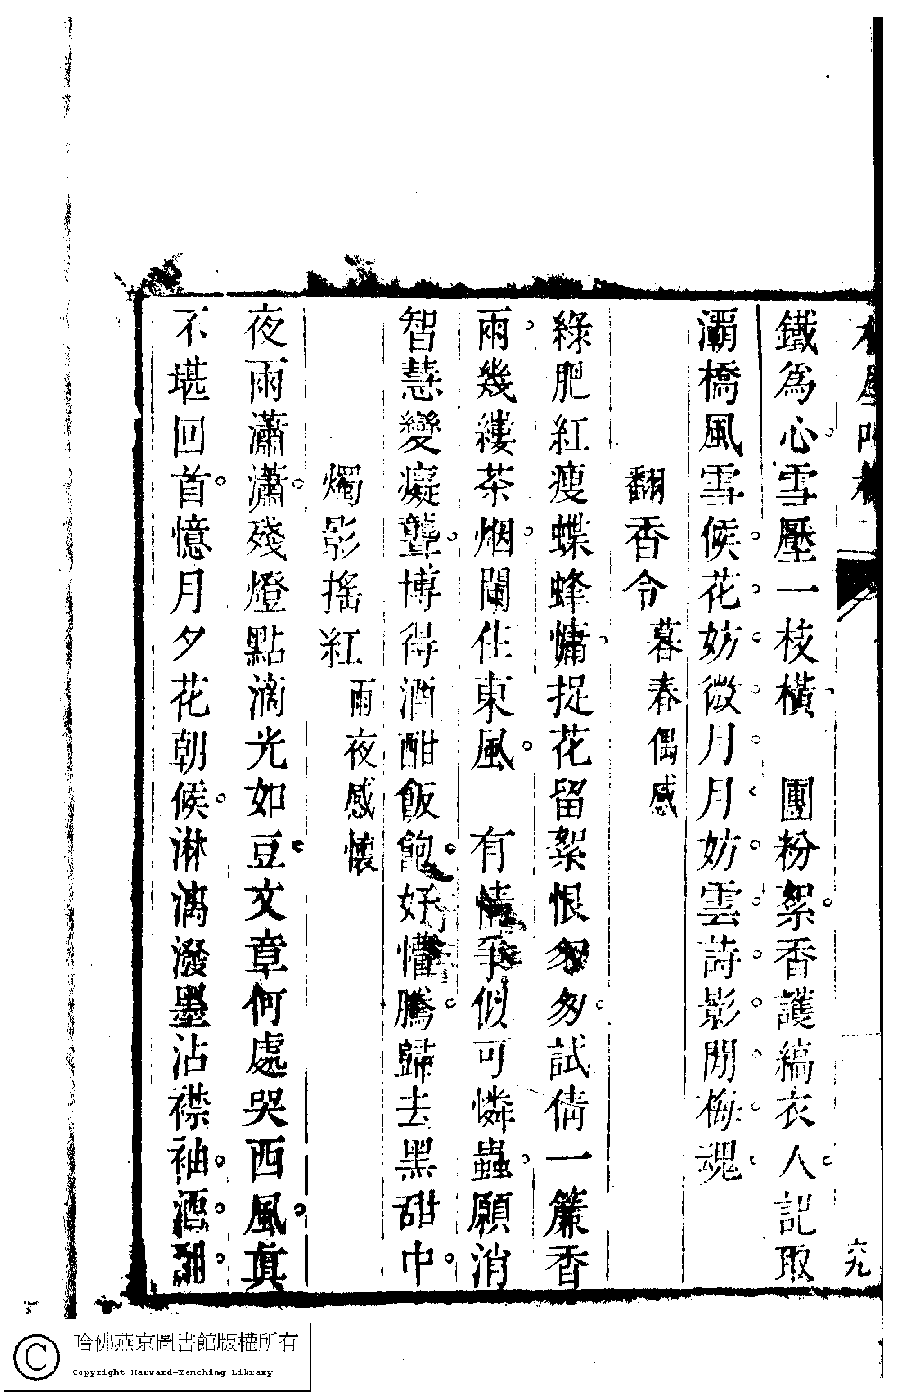 鐵為心雪壓一枝橫　團粉絮香護縞衣人記取
灞橋風雪候花妨微月月妨雲詩影閒梅魂
翻香令 暮春偶感
綠肥紅瘦蝶蜂慵捉花留絮恨匆匆試倩一簾香
雨幾縷茶烟闌住東風　有情爭似可憐蟲願消
智慧變癡聾博得酒酣飯飽好懵騰歸去黑甜中
燭影搖紅 雨夜感懷
夜雨瀟瀟殘燈點滴光如豆文章何處哭西風真
不堪回首憶月夕花朝候淋漓潑墨沾襟袖酒
哈佛燕京圖書館版權所有
Copyright Harvard-Yenching Library